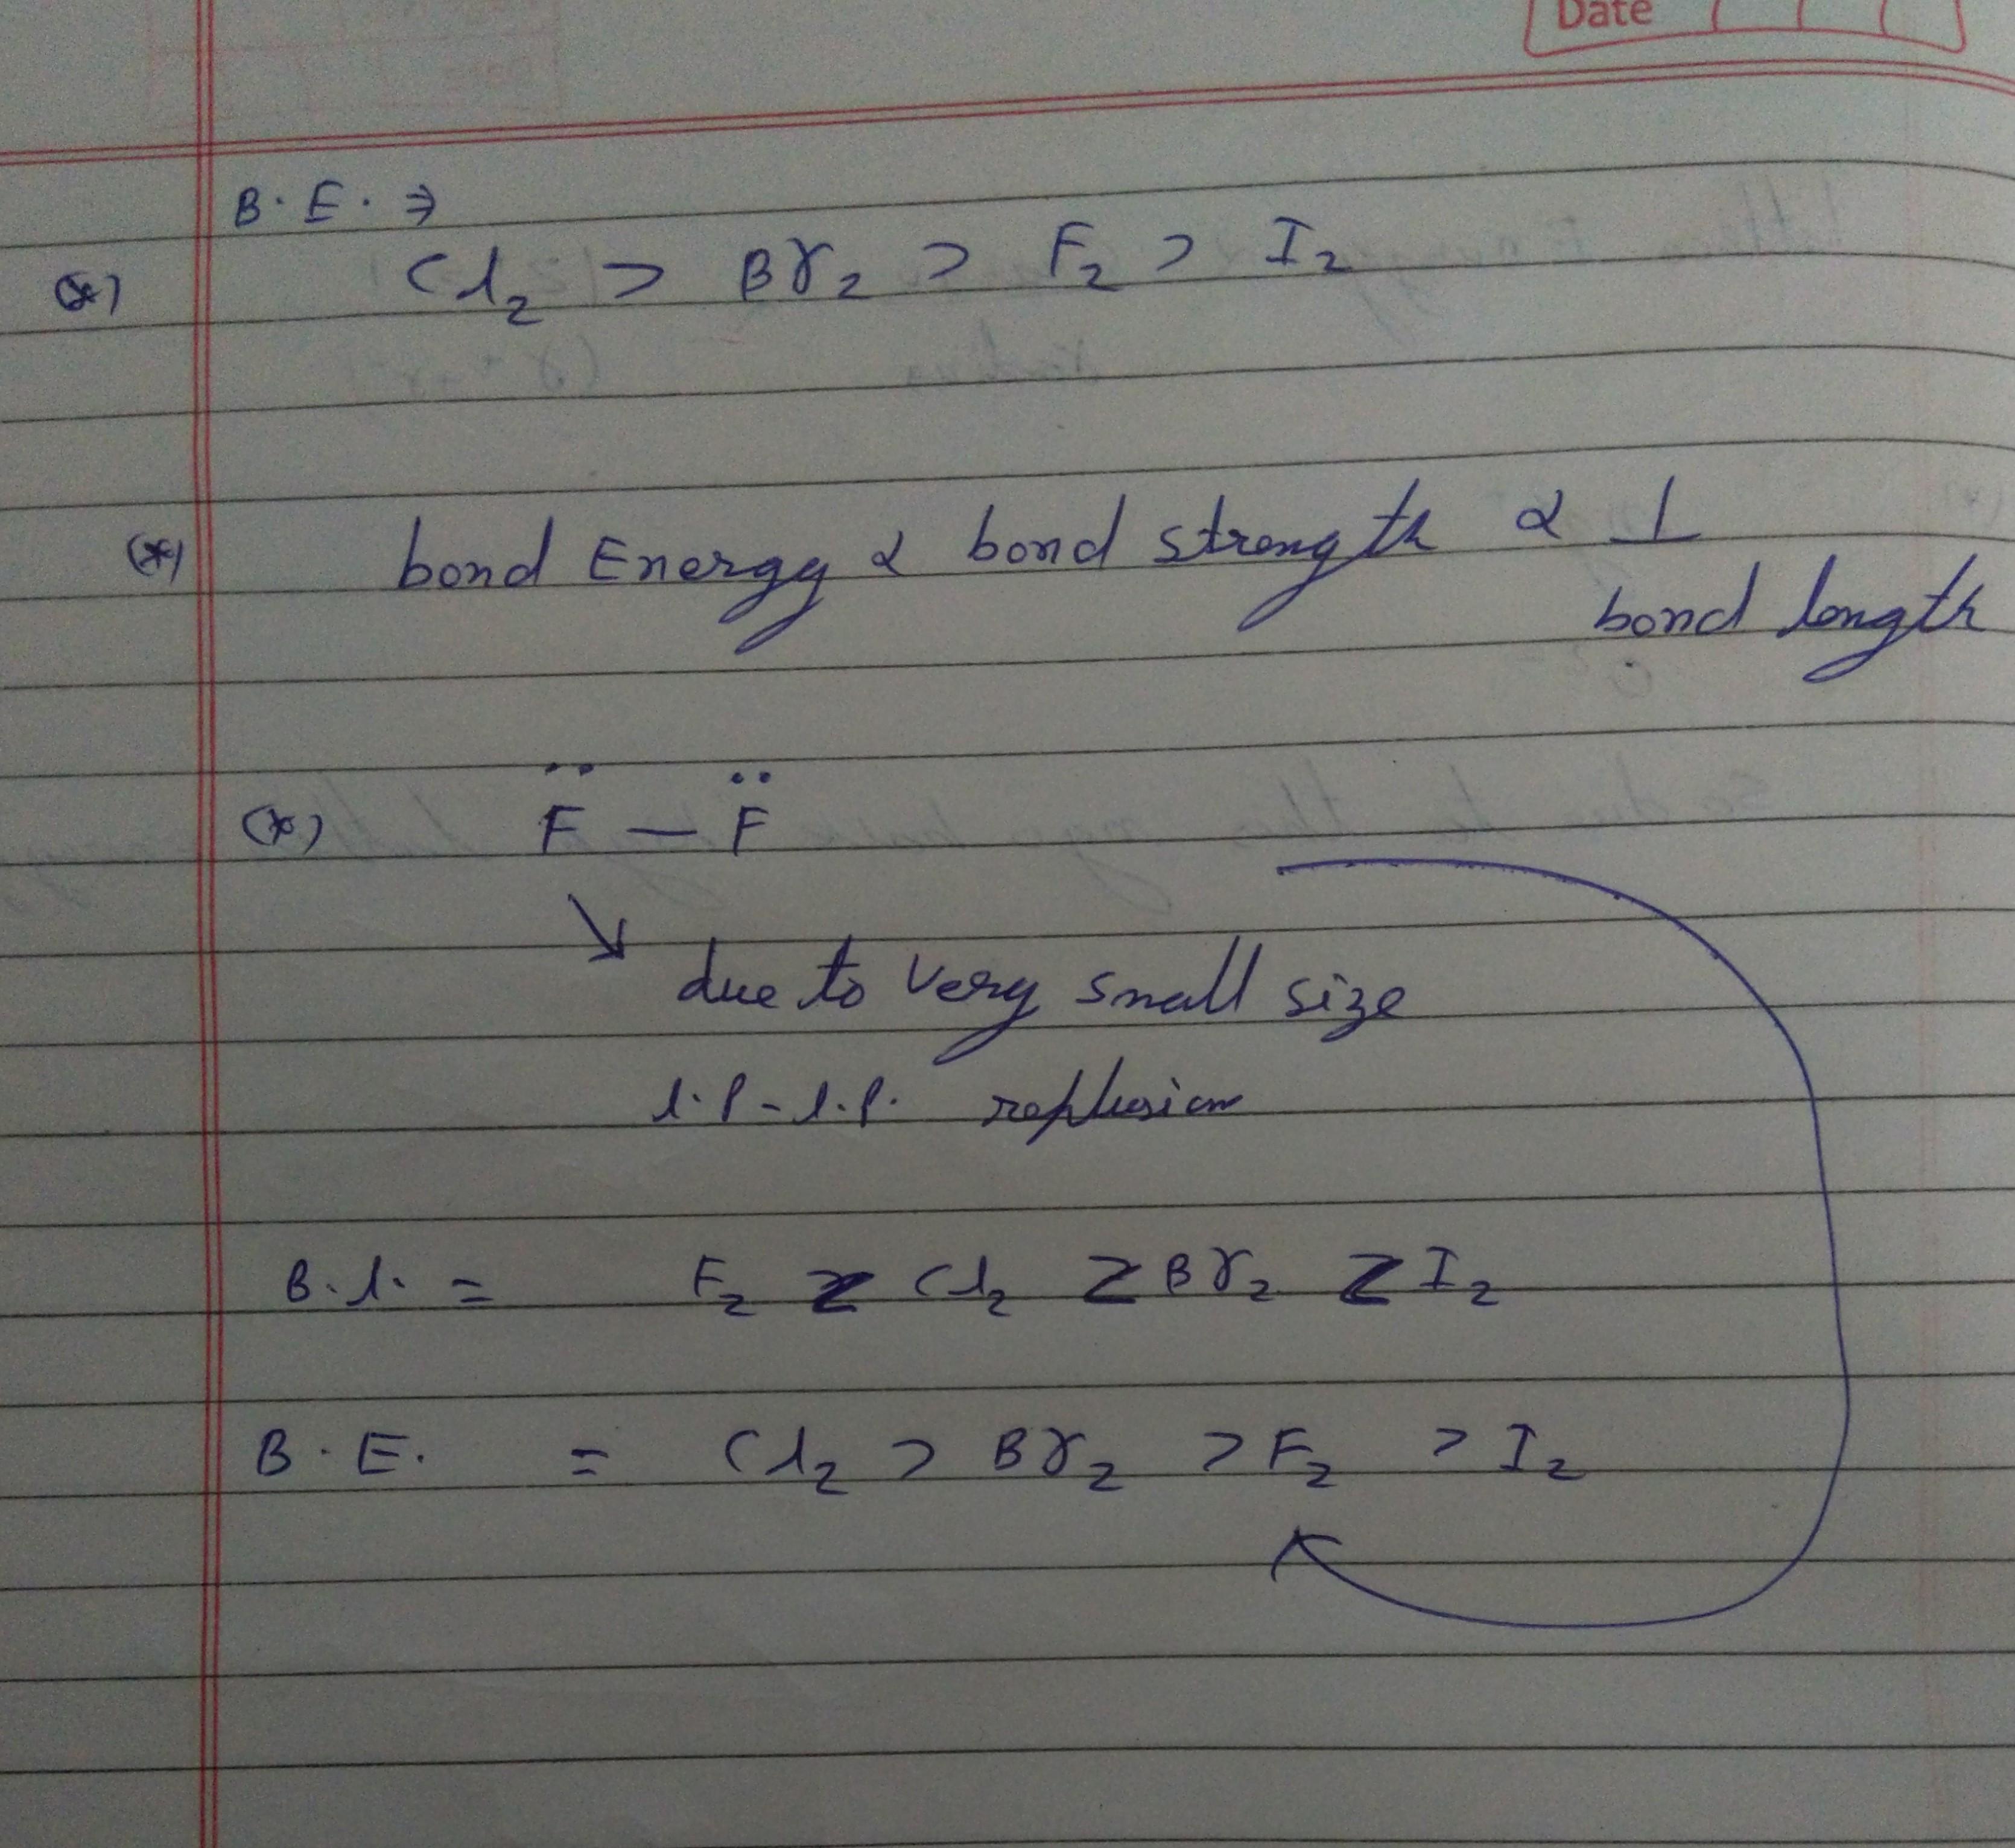 Date
B.E. ⇒
(*) Cl₂ > Br₂ > F₂ > I₂
(*) bond Energy α bond strength α 1
bond length
(*) F̈ — F̈
↘ due to very small size
l.p - l.p. replusion
B.l. = F₂ < Cl₂ < Br₂ < I₂
B.E. = Cl₂ > Br₂ > F₂ > I₂